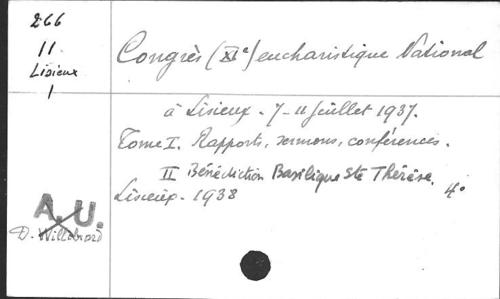 266
11
Lisieux
1
Congrès (XIe) eucharistique National
à Lisieux. 7-11 juillet 1937.
Tome I. Rapports, sermons, conférences.
II Bénédiction Basilique Ste Thérèse.
Lisieux. 1938 4°
A.U.
D. Willibrord